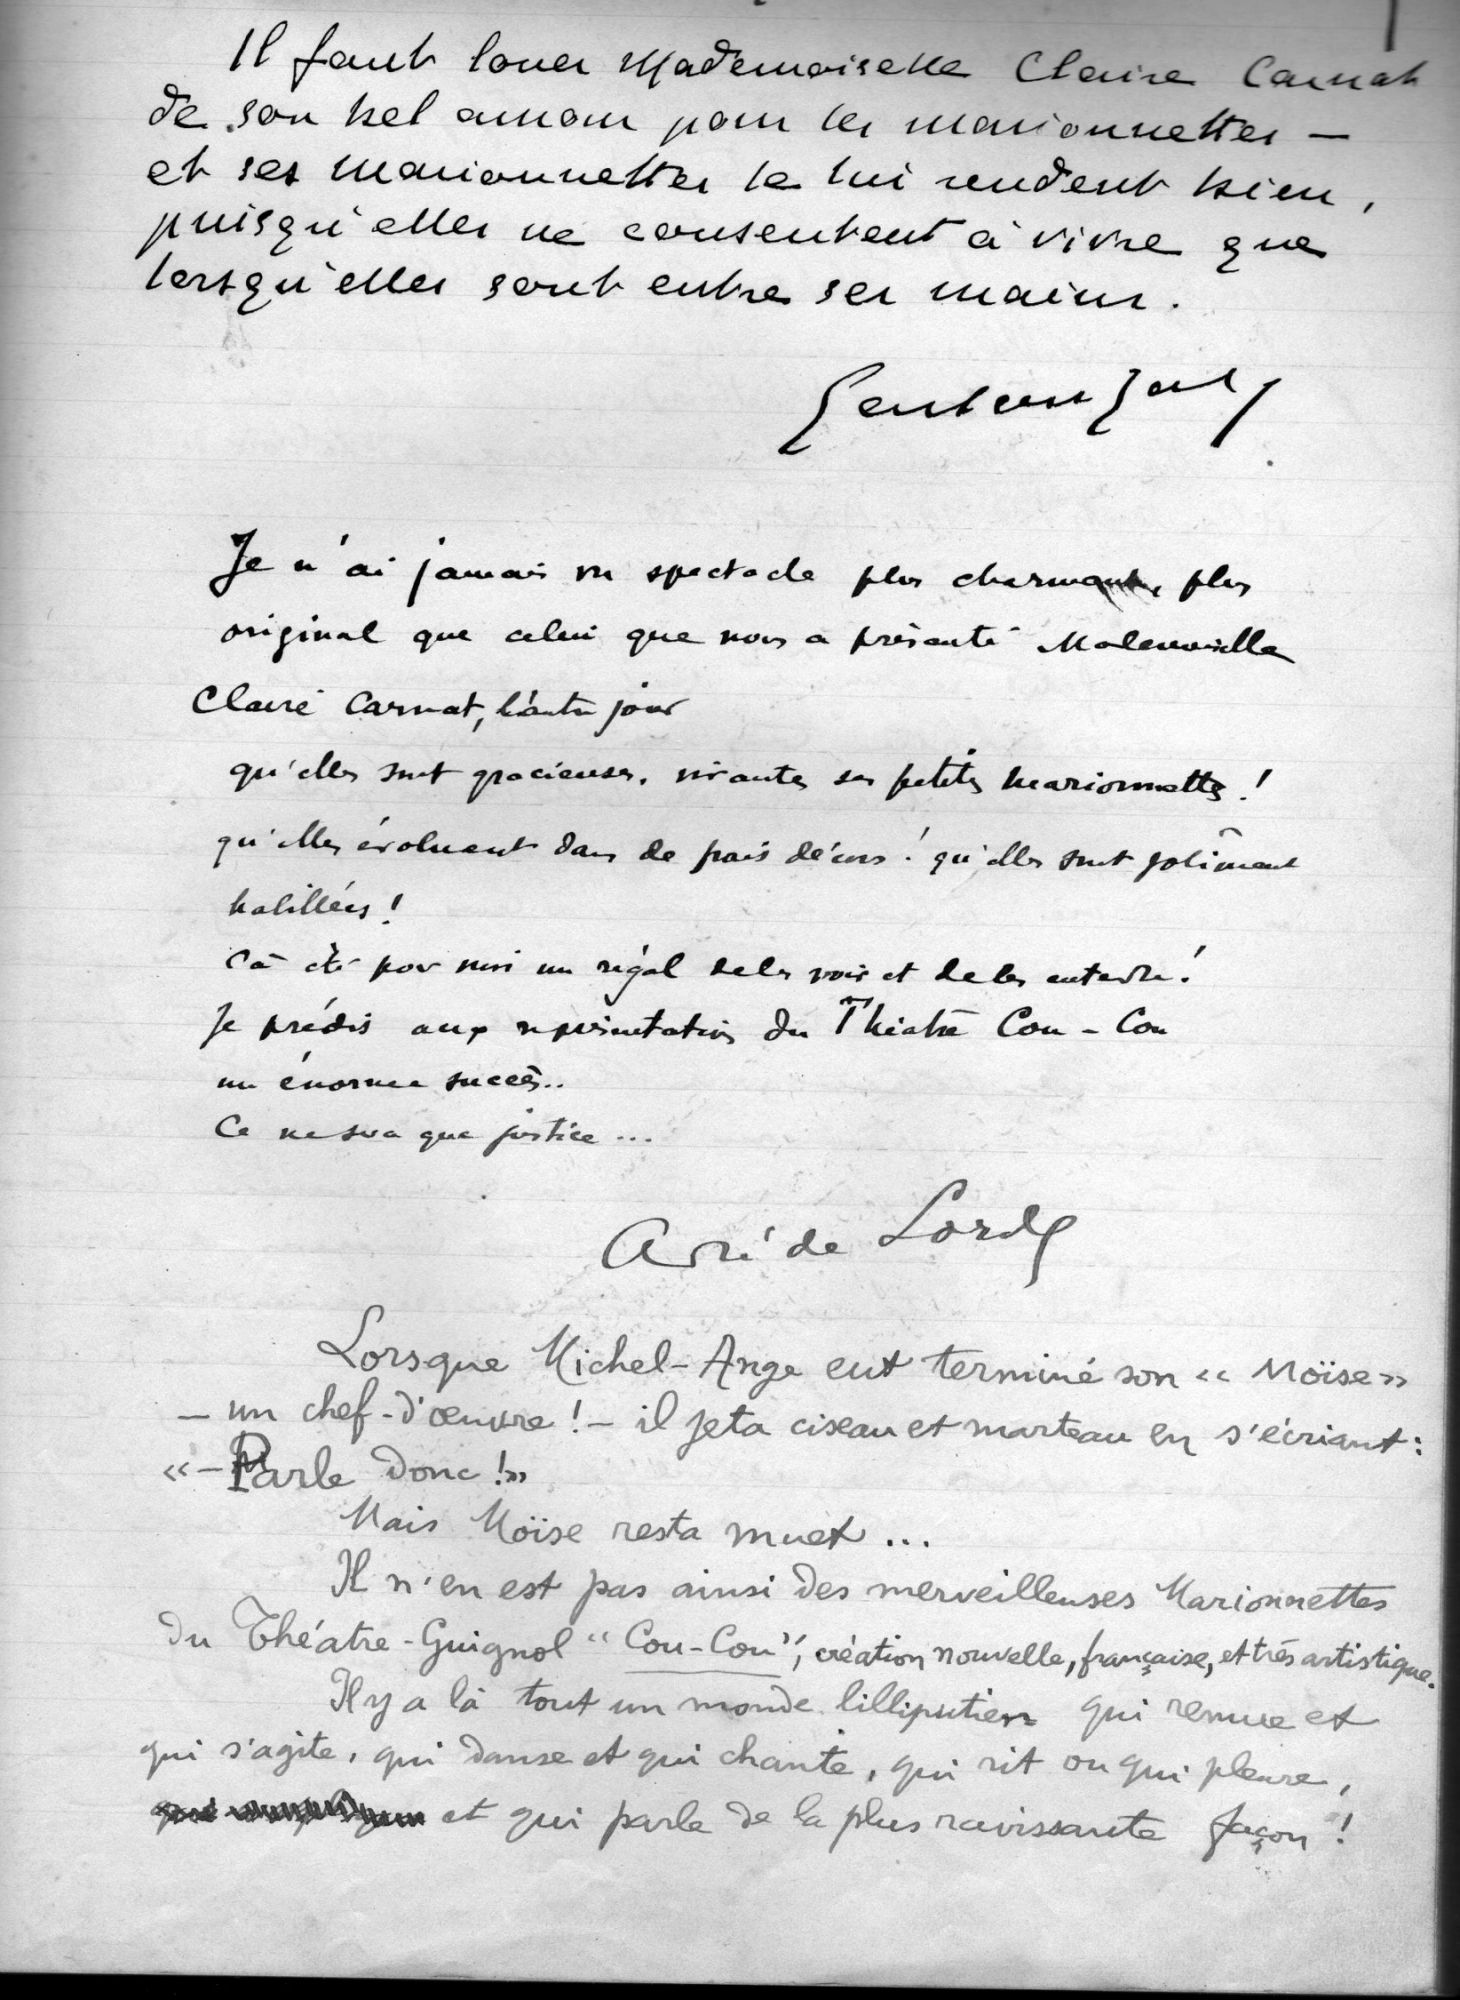 Il faut louer Mademoiselle Claire Carnat
de son bel amour pour les marionnettes —
et ses marionnettes le lui rendent bien,
puisqu'elles ne consentent à vivre que
lorsqu'elles sont entre ses mains.
Je n'ai jamais vu spectacle plus charmant, plus
original que celui que nous a présenté Mademoiselle
Claire Carnat, l'autre jour
qu'elles sont gracieuses, vivantes ses petites marionnettes !
qu'elles évoluent dans de frais décors ! qu'elles sont joliment
habillées !
Ca été pour moi un régal de les voir et de les entendre !
Je prédis aux représentations du Théatre Cou - Cou
un énorme succès..
Ce ne sera que justice ...
André de Lorde
Lorsque Michel-Ange eut terminé son « Moïse »
— un chef-d'œuvre ! — il jeta ciseau et marteau en s'écriant :
« — Parle donc ! »
Mais Moïse resta muet ...
Il n'en est pas ainsi des merveilleuses Marionnettes
du Théatre-Guignol "Cou-Cou", création nouvelle, française, et très artistique.
Il y a là tout un monde lilliputien qui remue et
qui s'agite, qui danse et qui chante, qui rit ou qui pleure,
et qui parle de la plus ravissante façon !